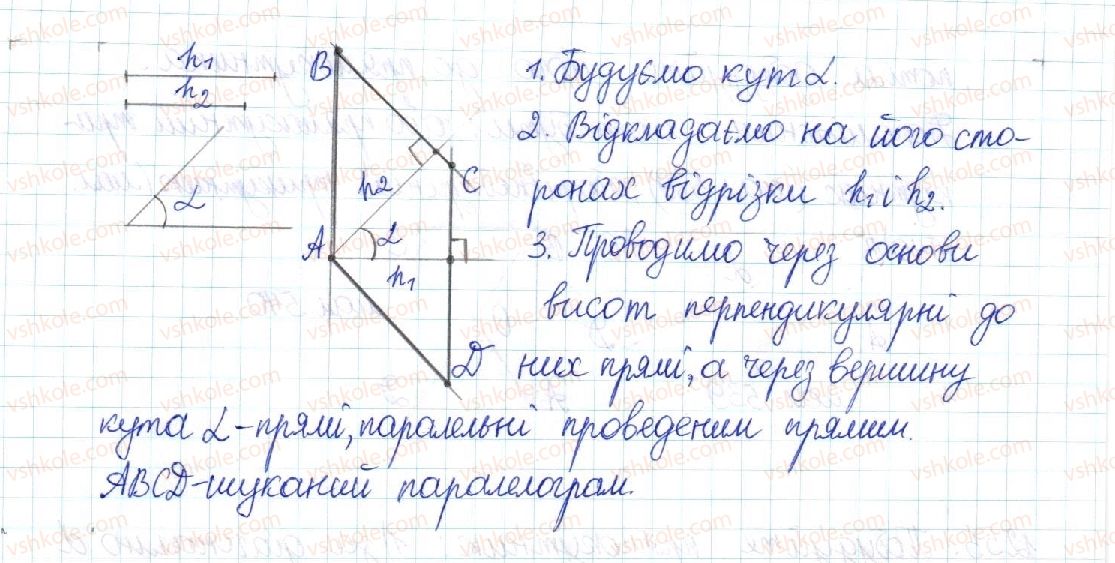 h1
h2
α
B
A
C
D
h2
α
h1
1. Будуємо кут α.
2. Відкладаємо на його сто-
ронах відрізки h1 і h2.
3. Проводимо через основи
висот перпендикулярні до
них прямі, а через вершину
кута α - прямі, паралельні проведеним прямим.
ABCD - шуканий паралелограм.
vshkole.com